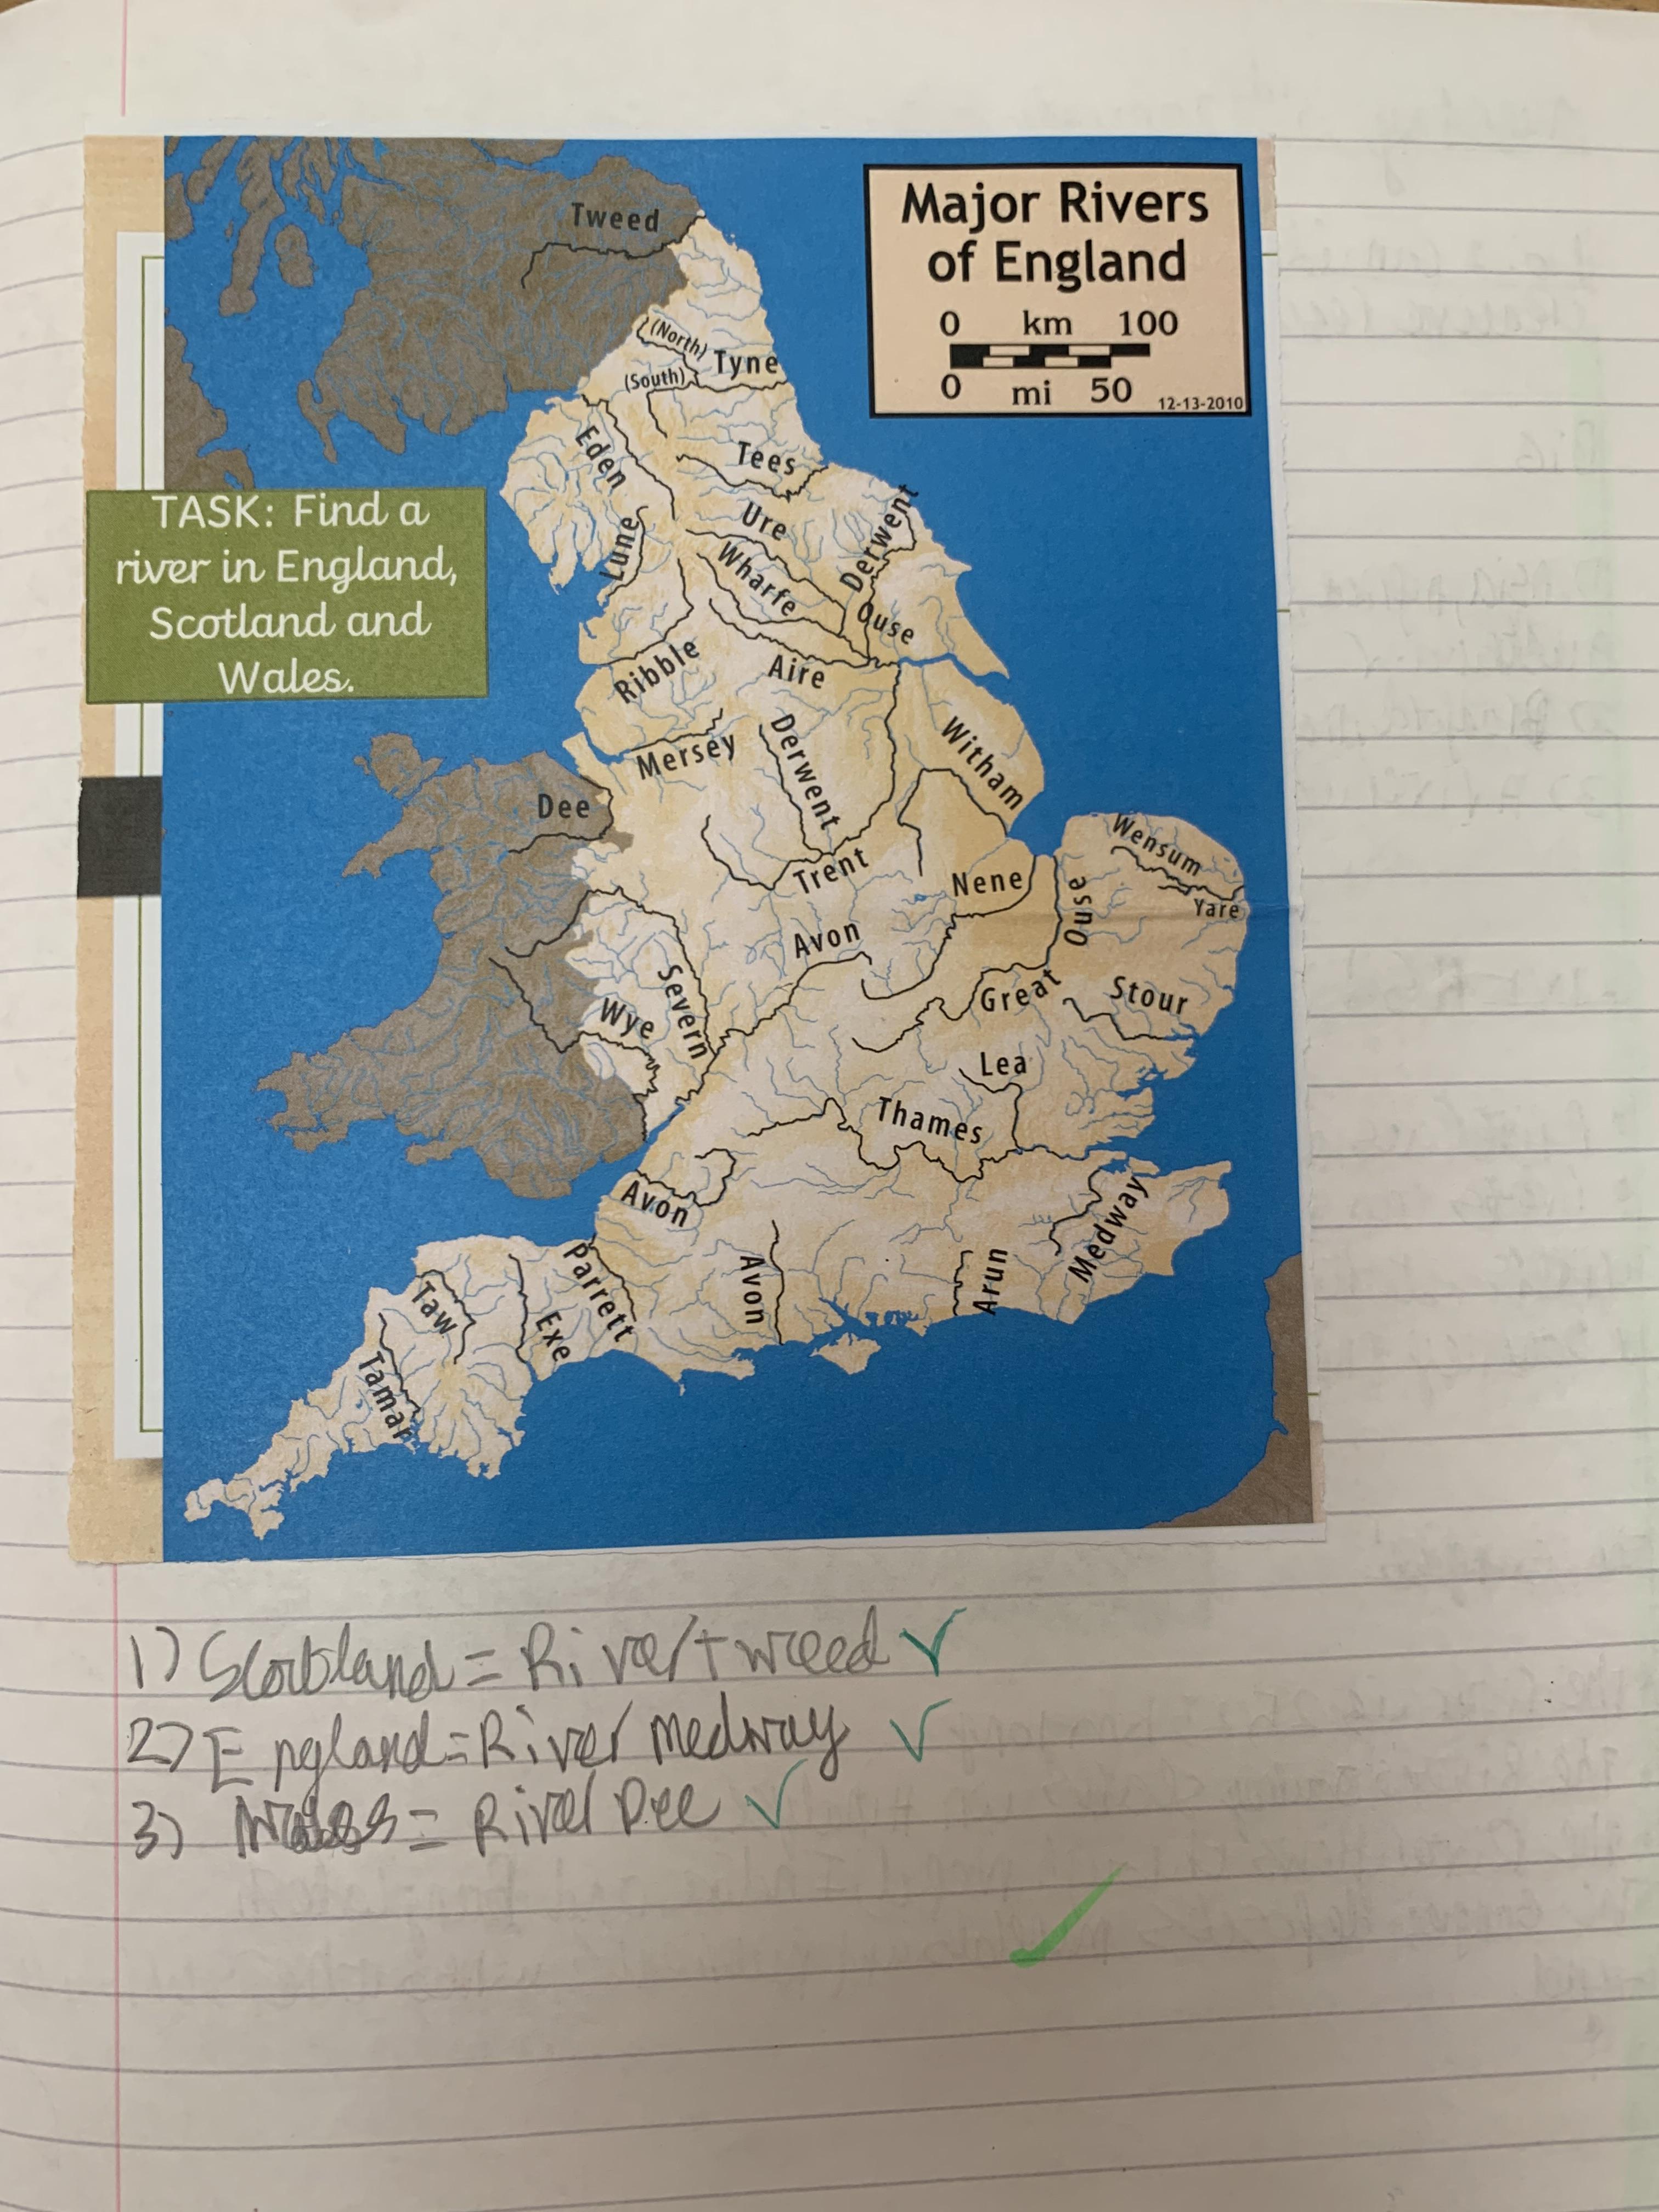 Major Rivers
of England
0 km 100
0 mi 50
12-13-2010
Tweed
(North)
Tyne
(South)
Eden
Tees
Ure
Derwent
Lune
Wharfe
Ouse
TASK: Find a
river in England,
Scotland and
Wales.
Ribble
Aire
Mersey
Derwent
Witham
Dee
Wensum
Trent
Nene
Ouse
Yare
Avon
Severn
Great
Stour
Wye
Lea
Thames
Avon
Medway
Parrett
Avon
Arun
Taw
Exe
Tamar
1) Scotland = River tweed
2) England = River medway
3) Wales = River Dee